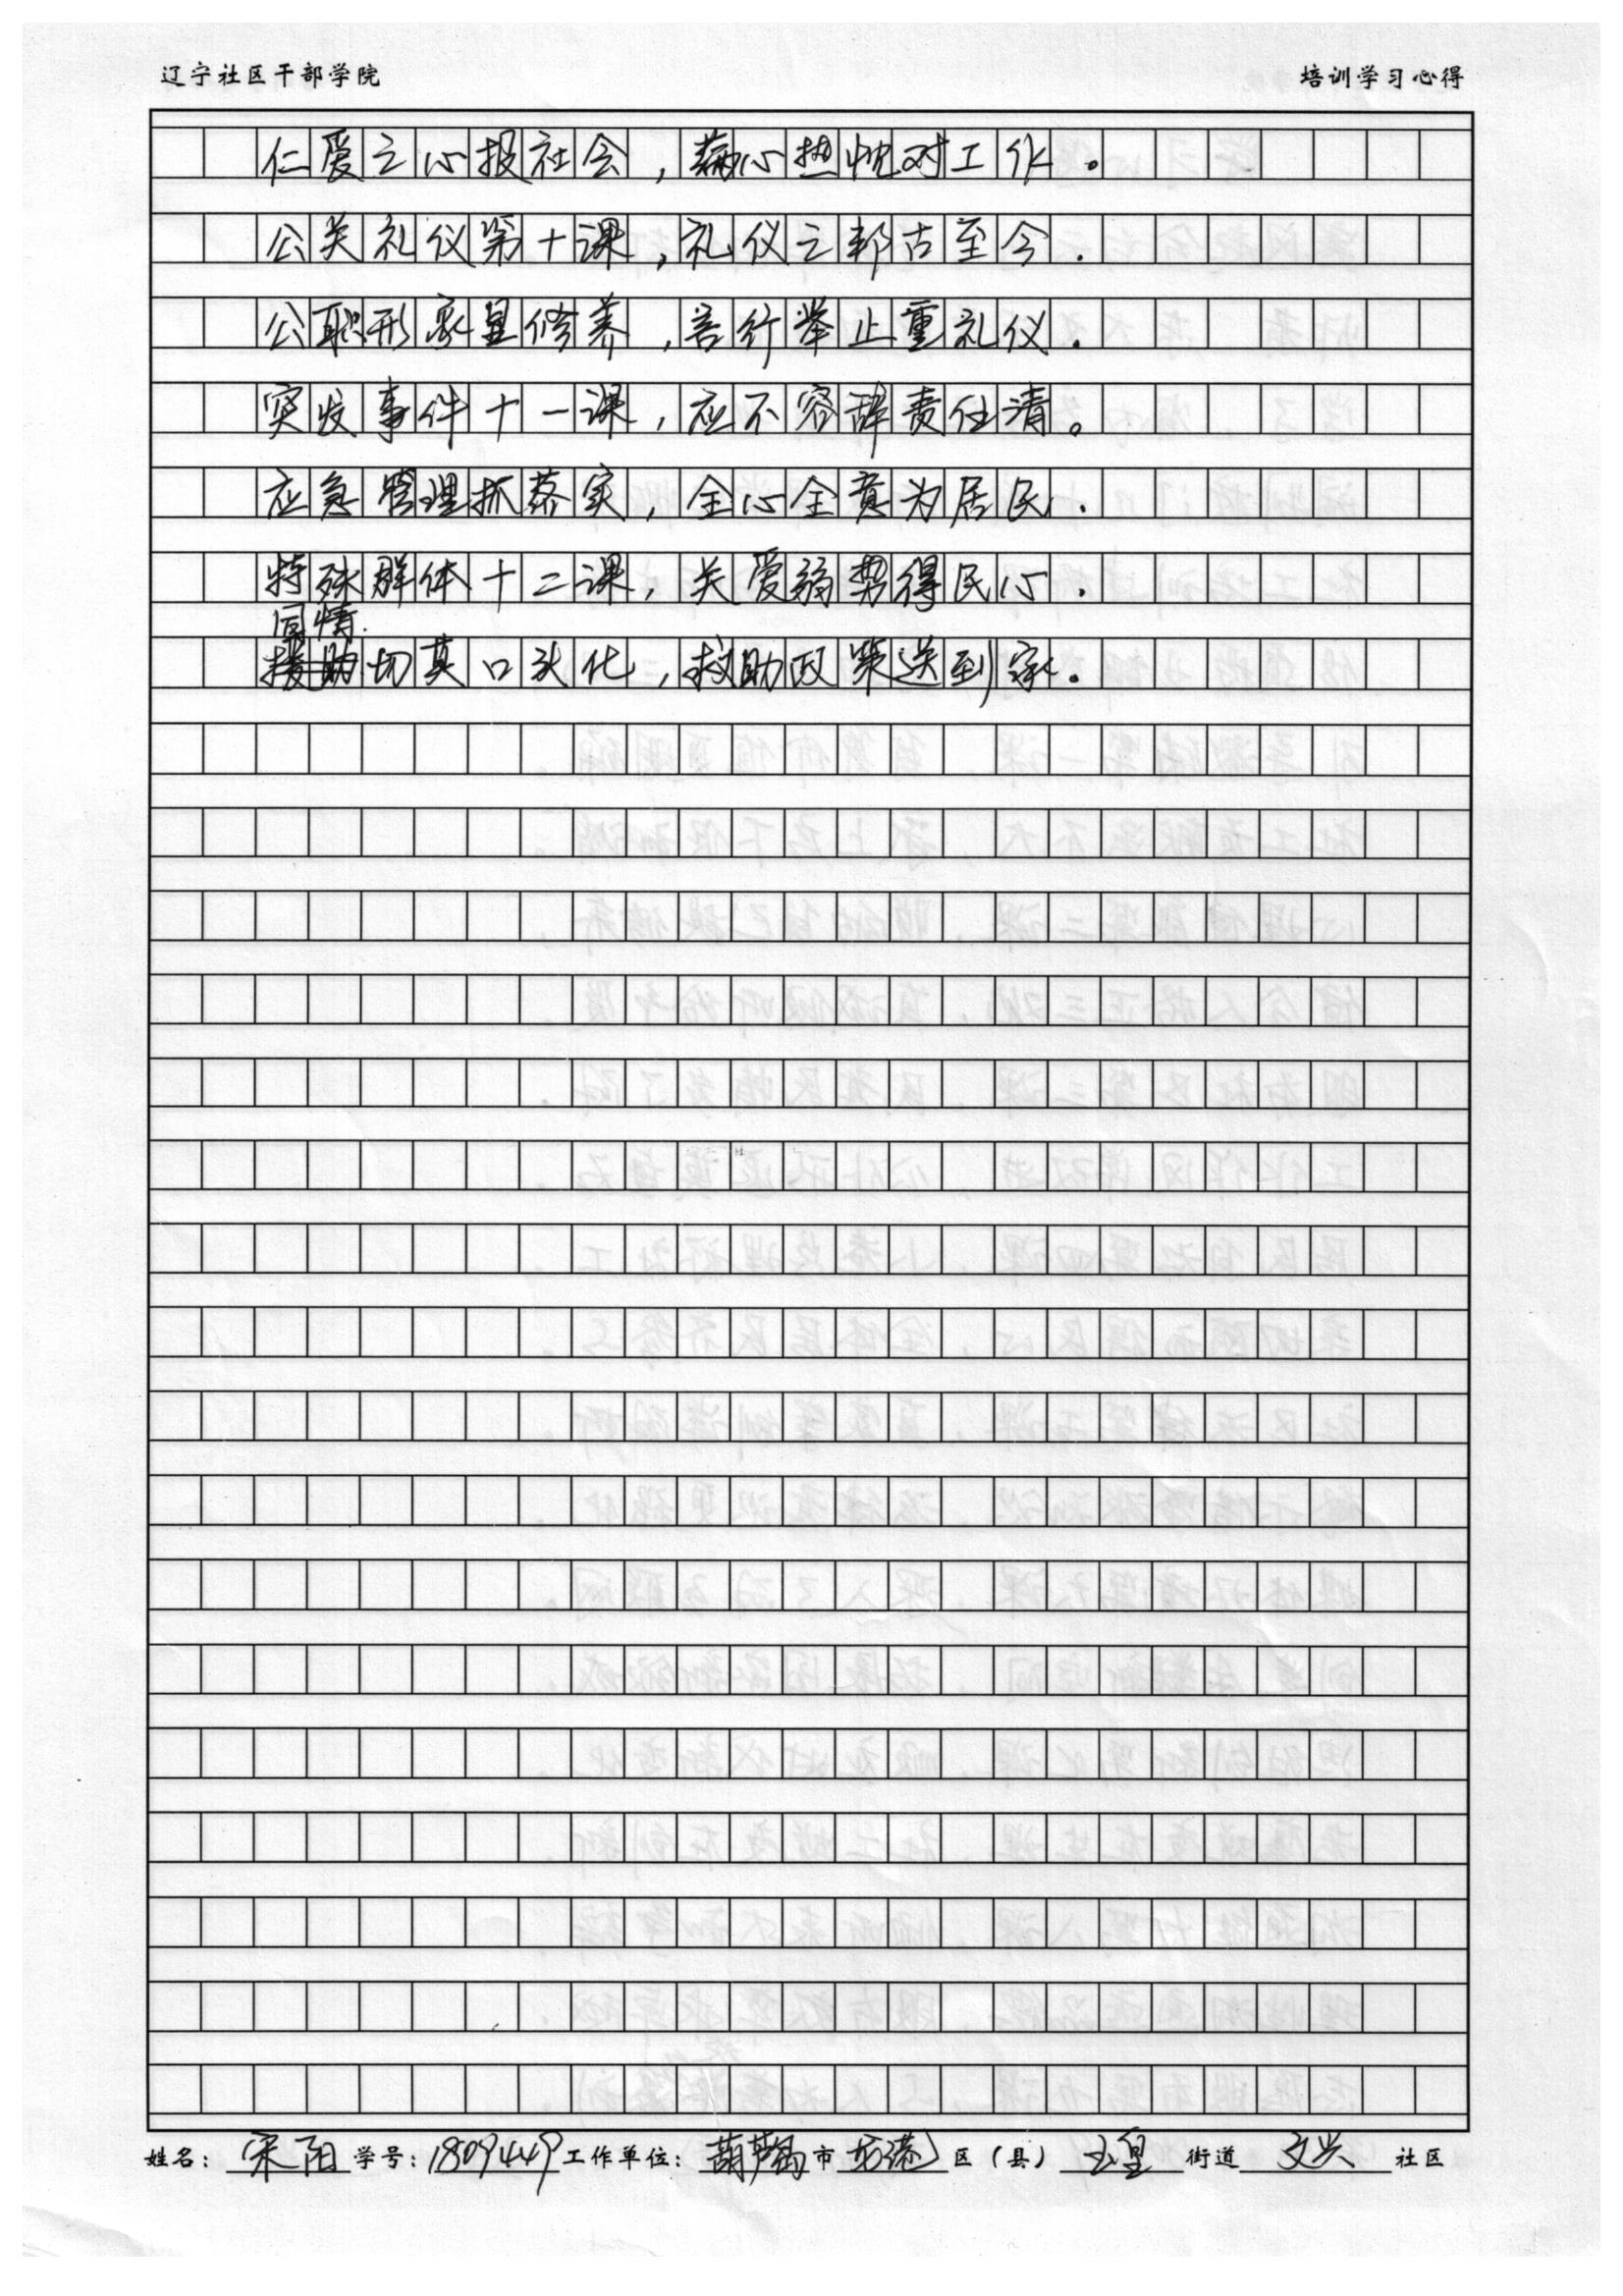 辽宁社区干部学院 培训学习心得
仁爱之心报社会，满心热忱对工作。
公关礼仪第十课，礼仪之邦古至今.
公职形象显修养，言行举止重礼仪.
突发事件十一课，应不容辞责任清。
应急管理抓落实，全心全意为居民.
特殊群体十二课，关爱弱势得民心.
同情.
援助切莫口头化，救助政策送到家.
姓名：宋阳 学号：1809449 工作单位：葫芦岛市龙港区（县）玉皇街道文兴社区